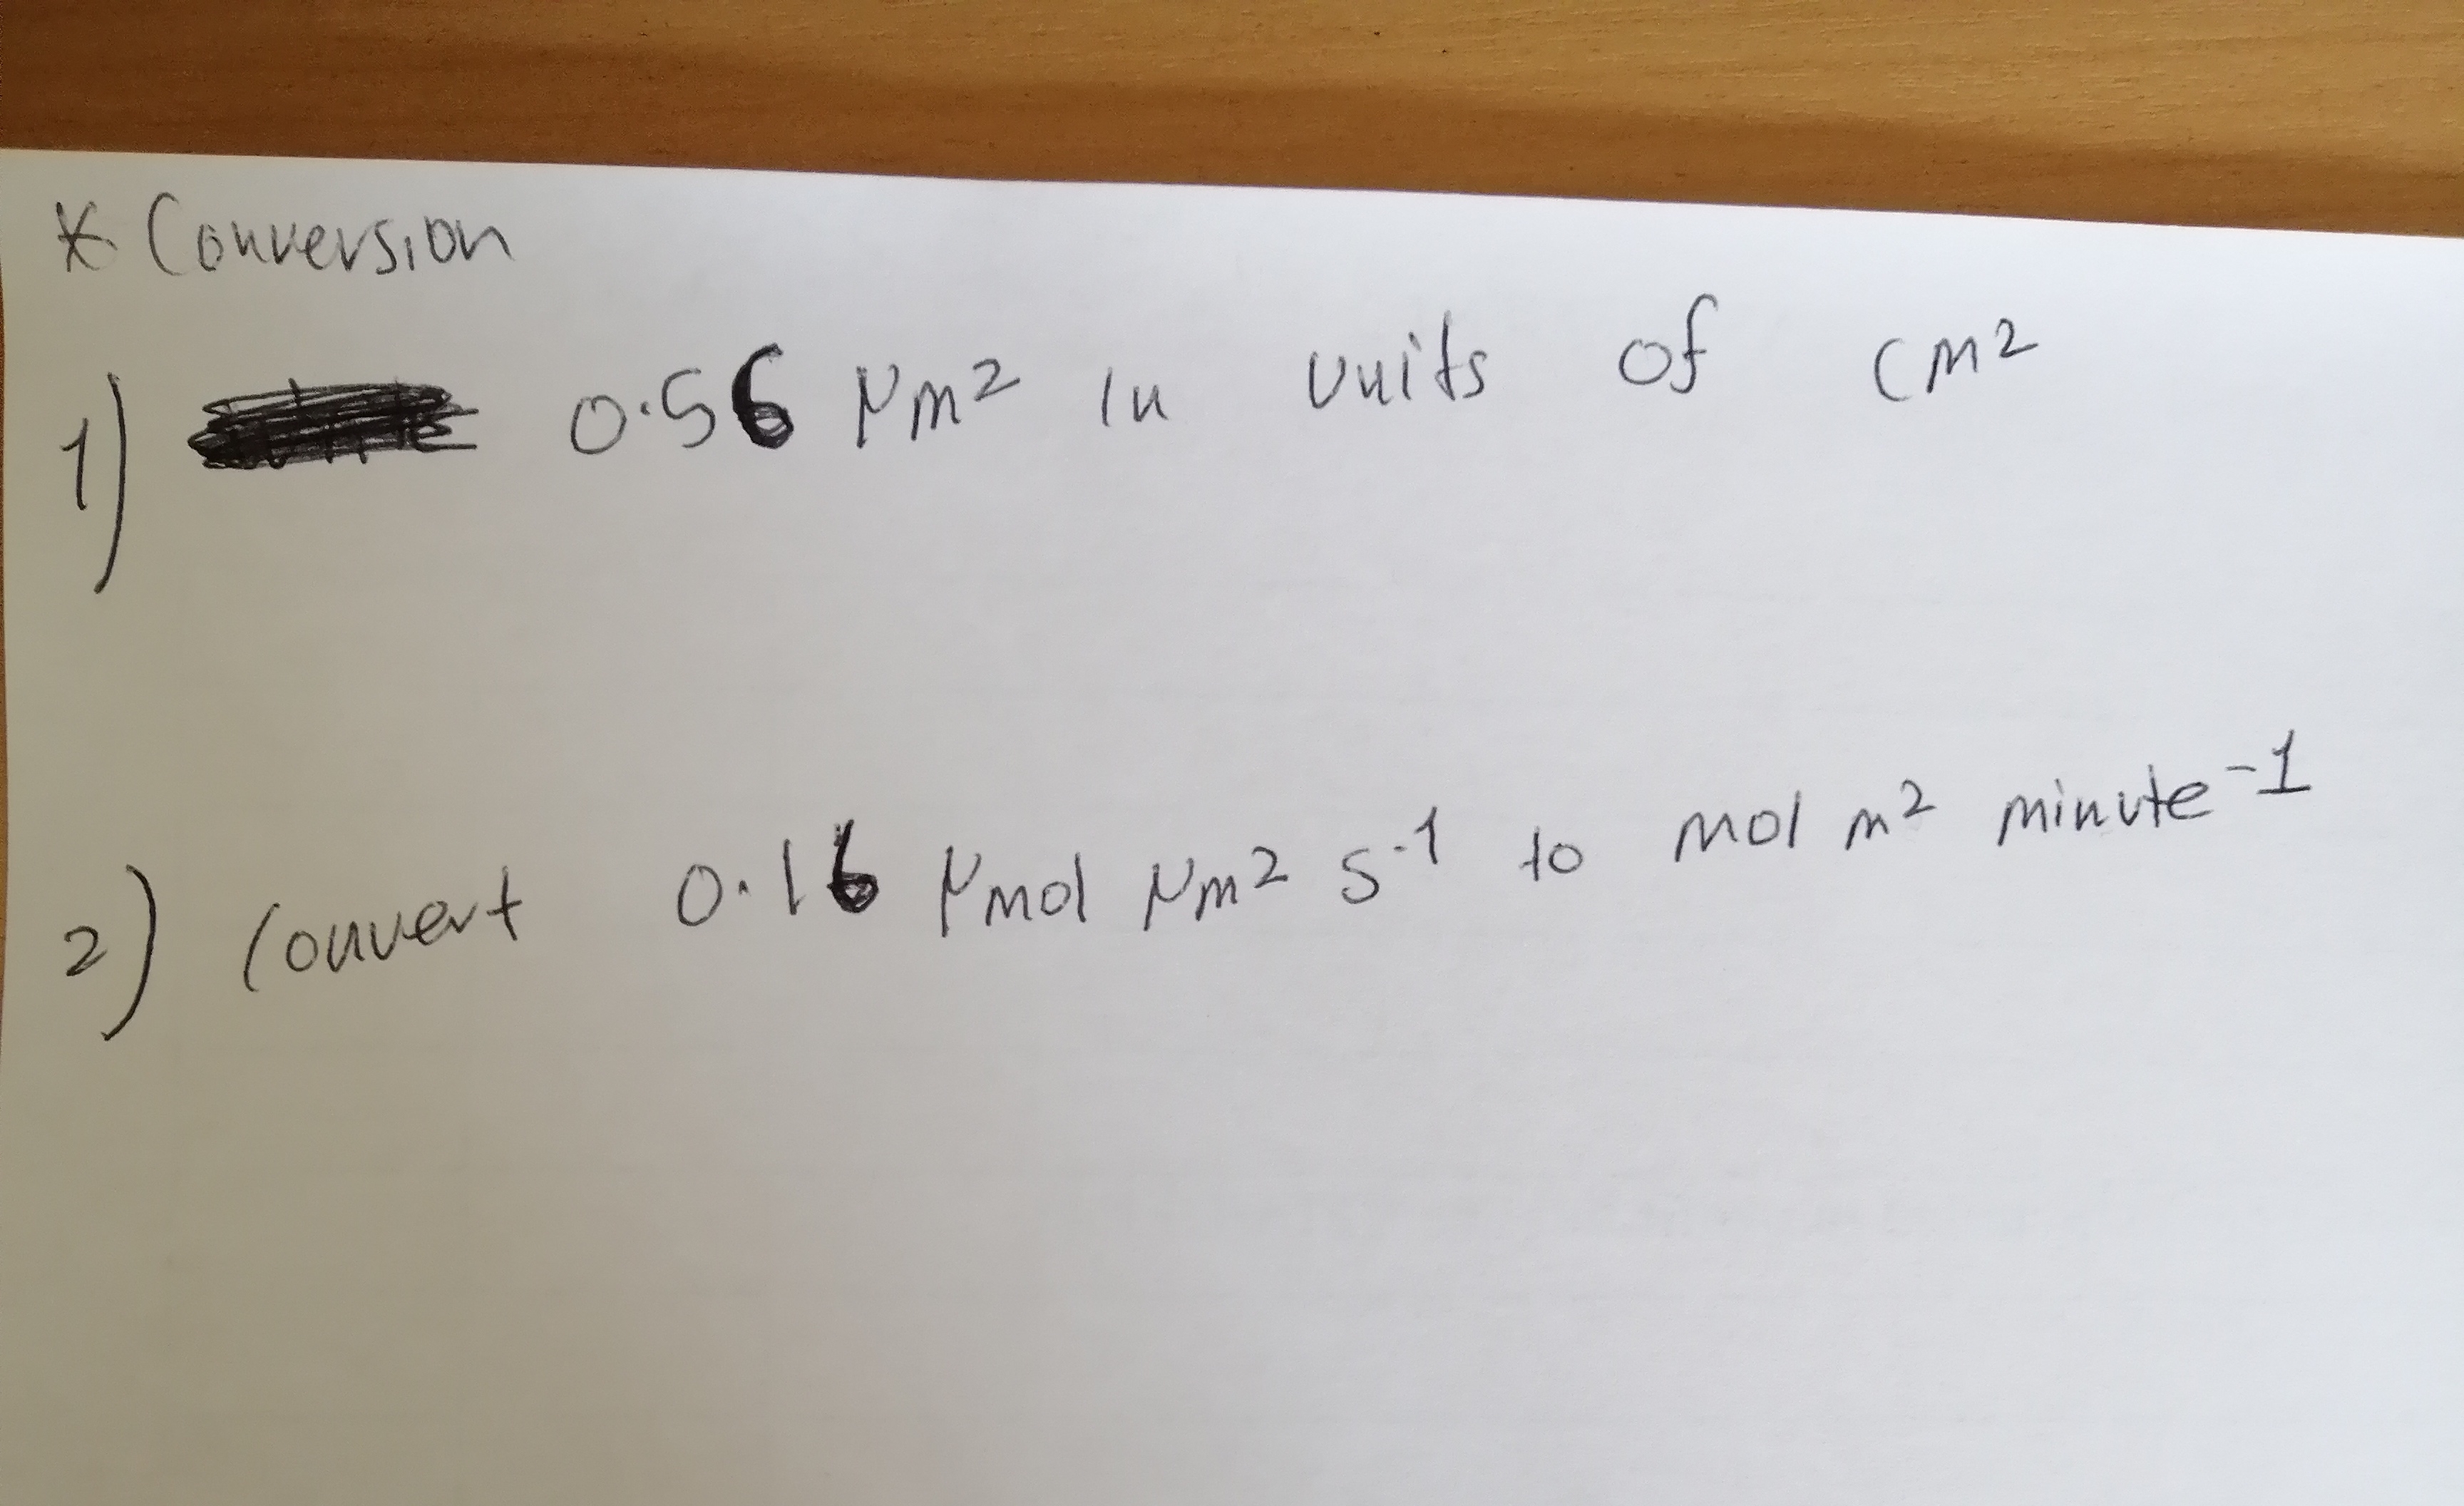 * Conversion
1) 0.56 μm² in units of cm²
2) Convert 0.16 μmol μm² s⁻¹ to mol m² minute⁻¹